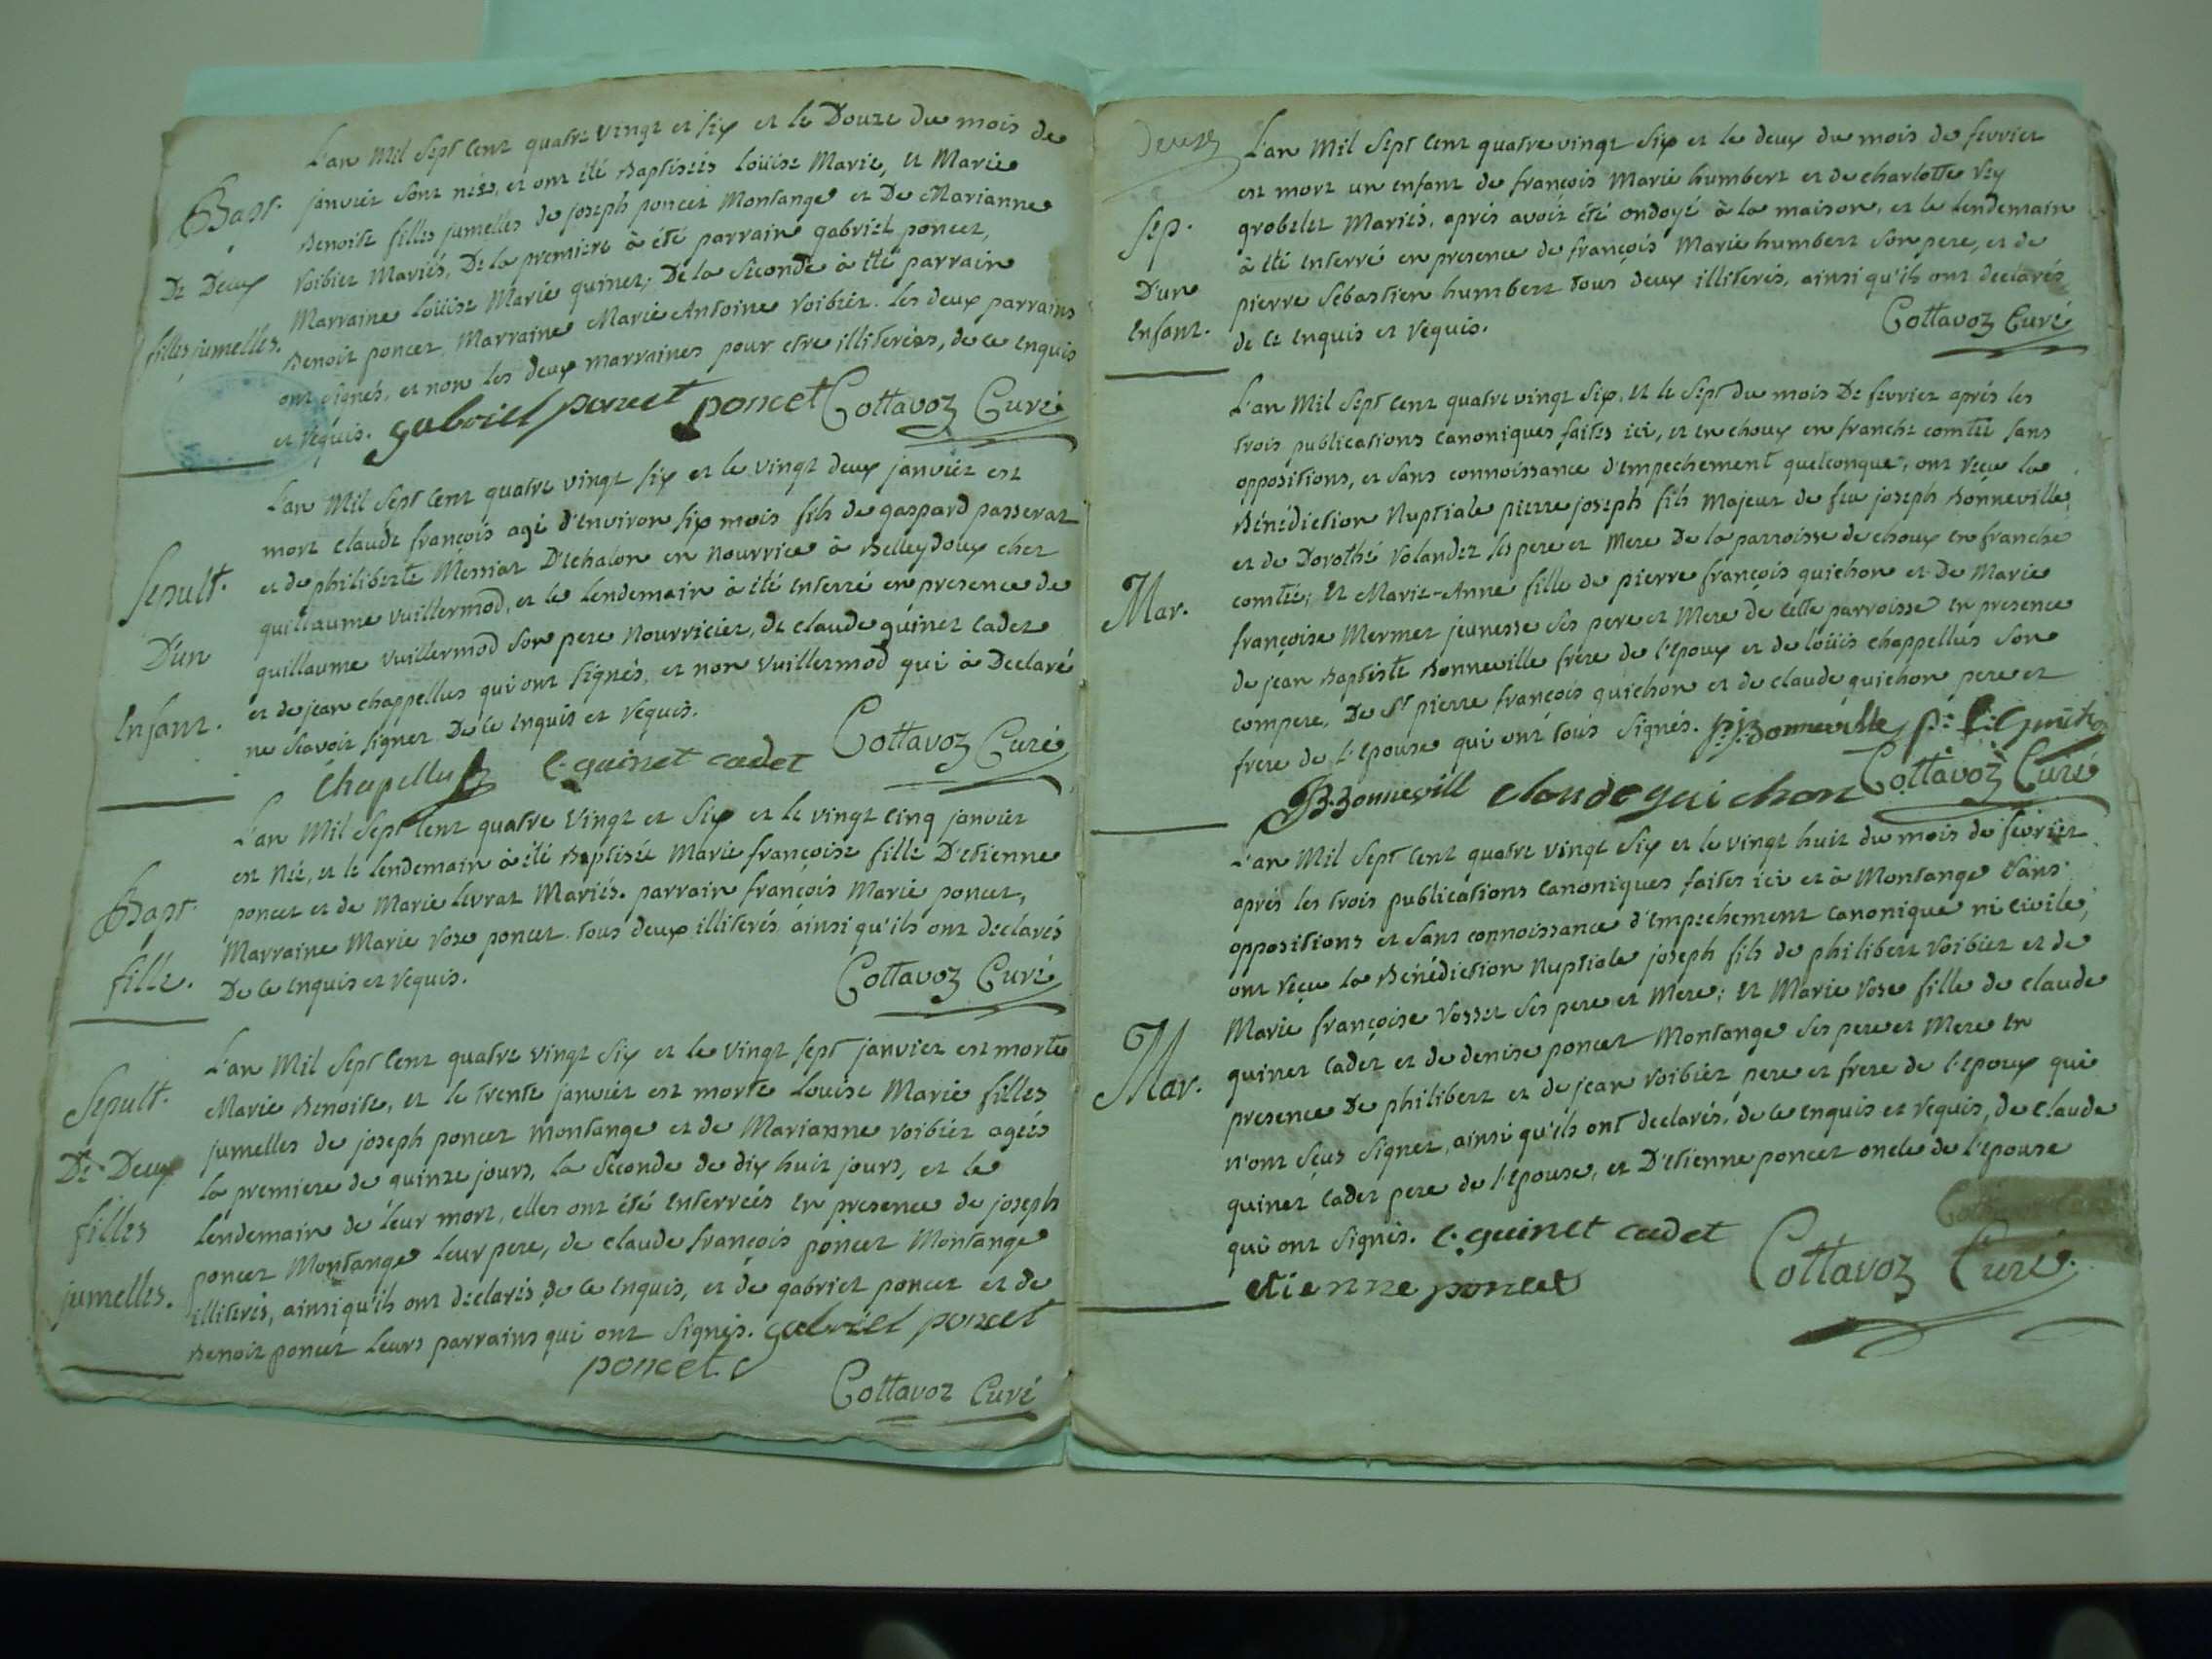 L'an Mil Sept Cent quatre vingt et six et le Douze du mois de
Bapt. janvier sont nées, et ont été Baptisées Loüise Marie, et Marie
Benoite filles jumelles de joseph poncet Montange et De Marianne
De Deux Voibier Mariés, De la premiere à été parrain gabriel poncet,
Marraine Loüise Marie guinet; De la Seconde à été parrain
filles jumelles. Benoit poncet, Marraine Marie Antoine Voibier. Les deux parrains
ont signés, et non les deux marraines pour etre illiterées, de ce enquis
et requis. gabriel poncet poncet Cottavoz Curé
L'an Mil Sept Cent quatre vingt six et le vingt deux janvier est
mort claude françois agé d'environ six mois fils de gaspard passerat
Sepult. et de philiberte Messiat D'Echalon en nourrice à Belleydoux chez
guillaume vuillermod, et le lendemain à été enterré en presence de
D'un guillaume vuillermod son pere nourricier, de claude guinet cadet
et de jean chappellus qui ont signés, et non vuillermod qui à Declaré
Enfant. ne sçavoir signer De ce enquis et requis.
Chapellus C. guinet cadet Cottavoz Curé
L'an Mil Sept Cent quatre Vingt et Six et le vingt cinq janvier
est Née, et le lendemain à été Baptisée Marie françoise fille D'Etienne
Bapt. poncet et de Marie Livrat Mariés. parrain françois Marie poncet,
Marraine Marie rose poncet tous deux illiterés ainsi qu'ils ont declarés
fille. De ce enquis et requis. Cottavoz Curé
L'an Mil Sept Cent quatre vingt six et le vingt sept janvier est morte
Sepult. Marie Benoite, et le trente janvier est morte Louise Marie filles
jumelles de joseph poncet montange et de Marianne voibier agées
De Deux la premiere de quinze jours, la Seconde de dix huit jours, et le
filles lendemain de leur mort, elles ont été enterrées en presence de joseph
poncet Montange leur pere, de claude françois poncet Montange
jumelles. illiterés, ainsi qu'ils ont declarés de ce enquis, et de gabriel poncet et de
Benoit poncet leurs parrains qui ont signés. gabriel poncet
poncet
Cottavoz Curé
Deux L'an Mil Sept Cent quatre vingt Six et le deux du mois de fevrier
est mort un enfant de françois Marie humbert et de charlotte rey
Sep. grobelet Mariés, aprés avoir été ondoyé à la maison, et le lendemain
à été enterré en presence de françois Marie humbert son pere, et de
D'un pierre Sebastien humbert tous deux illiterés, ainsi qu'ils ont declarés
Enfant. de ce enquis et requis. Cottavoz Curé
L'an Mil Sept Cent quatre vingt Six, et le Sept du mois De fevrier aprés les
trois publications canoniques faites ici, et en choux en franche comté sans
oppositions, et sans connoissance d'empechement quelconque, ont reçu la
Bénédiction Nuptiale pierre joseph fils Majeur de feu joseph Bonneville
et de Dorothé Volandet ses pere et Mere De la parroisse de choux en franche
Mar. comté; Et Marie-Anne fille de pierre françois guichon et De Marie
françoise Mermet jeunesse ses pere et Mere de cette parroisse en presence
de jean Baptiste Bonneville frere de l'epoux et de loüis chappellus son
compere, De Sr pierre françois guichon et de claude guichon pere et
frere de l'epouse qui ont tous signés. p.j. Bonneville
B. Bonnevill claude guichon Cottavoz Curé
L'an Mil Sept Cent quatre vingt Six et le vingt huit du mois de fevrier
aprés les trois publications canoniques faites ici et à Montange sans
oppositions et sans connoissance d'empechement canonique ni civile,
ont reçu la Bénédiction Nuptiale joseph fils de philibert voibier et de
Marie françoise rosset ses pere et Mere; Et Marie rose fille de claude
guinet cadet et de denise poncet Montange ses pere et Mere en
Mar. presence De philibert et de jean voibier pere et frere de l'epoux qui
n'ont sçus signer, ainsi qu'ils ont declarés, de ce enquis et requis, de claude
guinet cadet pere de l'epouse, et D'etienne poncet oncle de l'epouse
qui ont signés. C. guinet cadet
etienne poncet Cottavoz Curé.